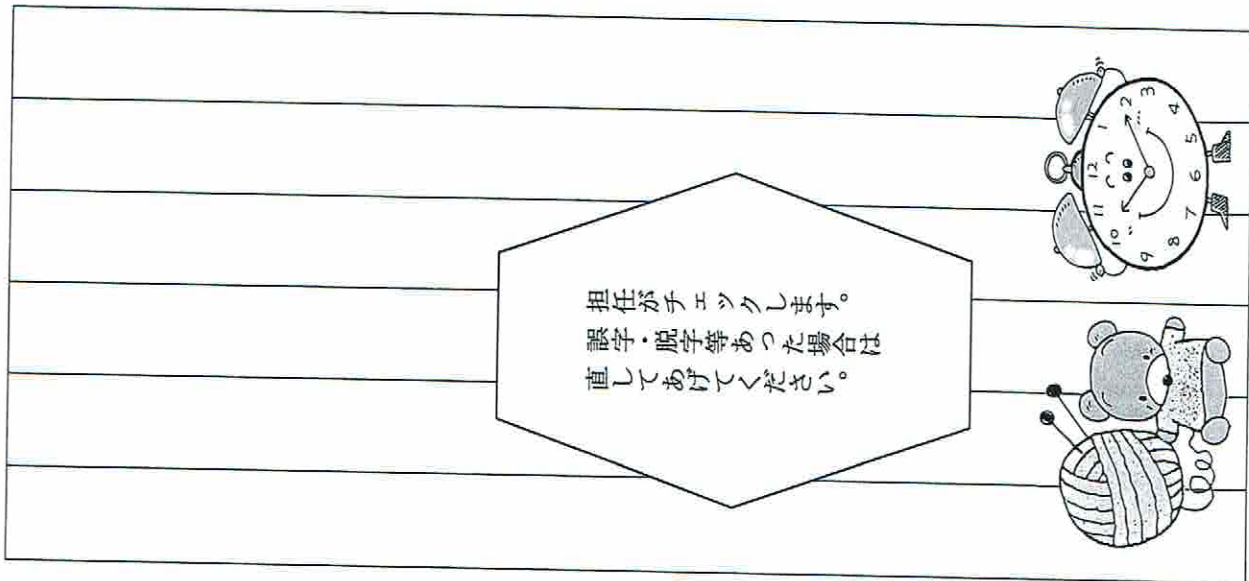 担任がチェックします。
誤字・脱字等あった場合は
直してあげてください。
12
1
2
3
4
5
6
7
8
9
10
11